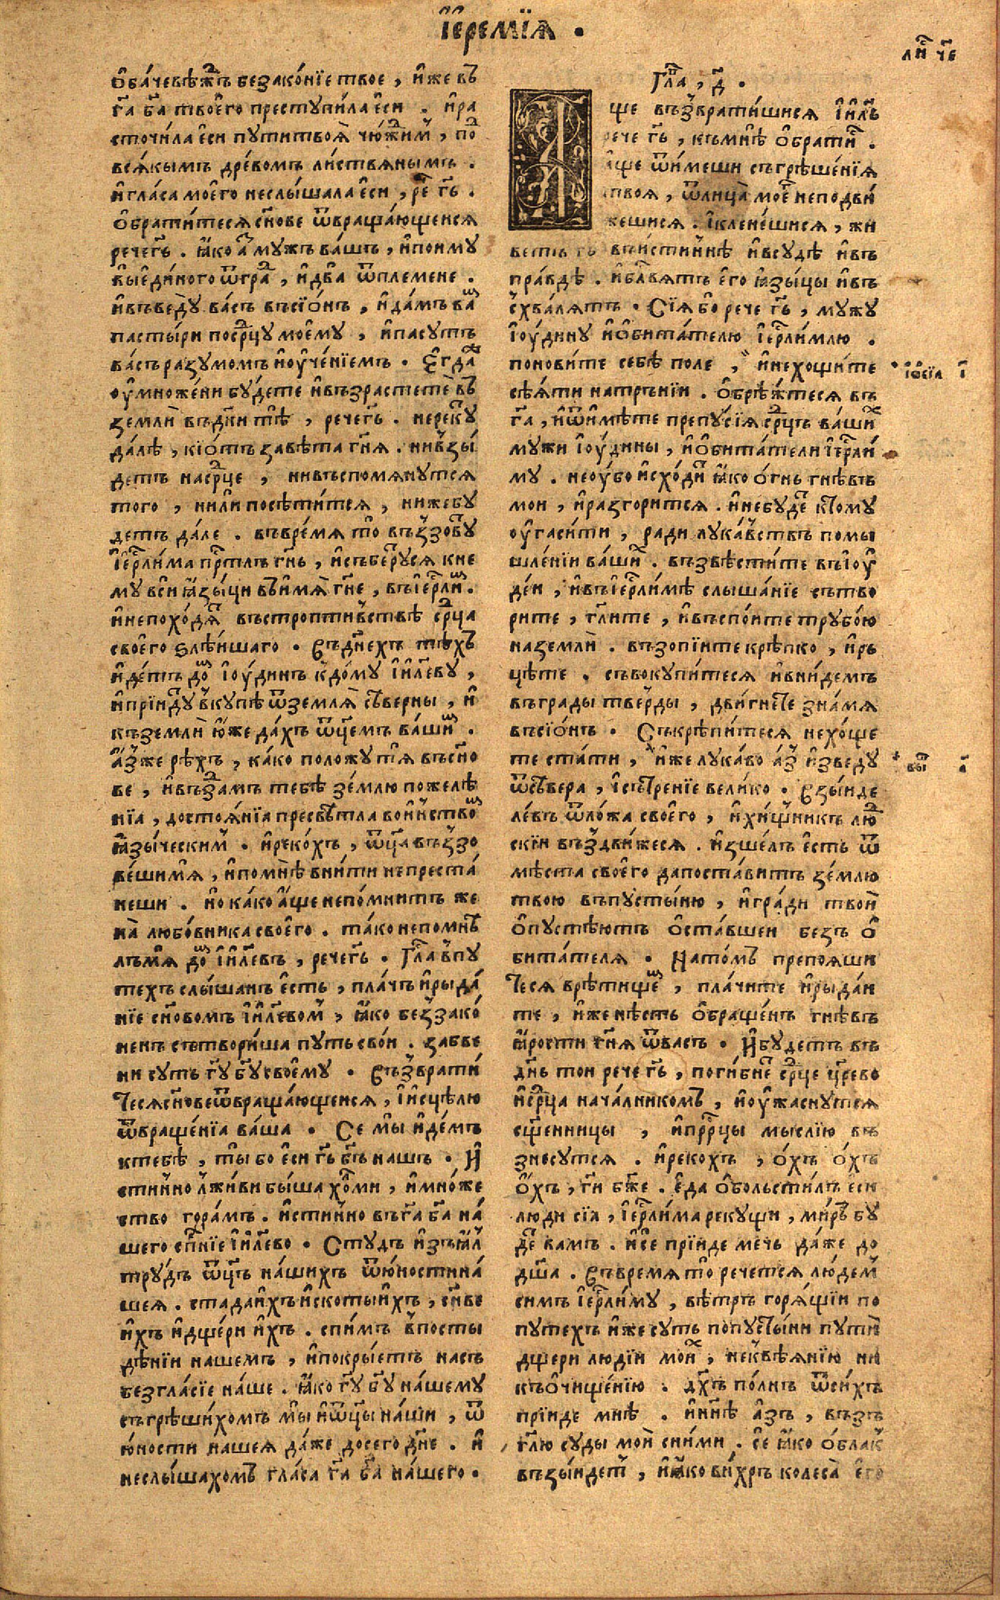 І҆еремїѧ .
лн҃ ч҃е
Ѻ҆ба́чевѣ́жⷣь безако́нїе твое , и҆́же въ
га҃ ба҃ твоего̀ преступи́ла є҆си . и҆ра
сточи́ла є҆си пути̑твоѧ̀ чюжи́мⷨ , поⷣ
всѧ́кымъ дре́вомъ ли́ствѧнымъ .
и҆гла́са моего̀ неслы́шала є҆си , реⷱ҇ гь҃ .
Ѻ҆брати́теса сн҃ове ѿвраща́ющеисѧ
речегь҃ . ꙗ҆́ко а҆зⷥ мужъ ва́шъ , и҆пои́му
вы є҆ди́ного ѿгра́ⷣ , и҆два̀ ѿпле́мене .
и҆въведу̀ ва́съ въсїѡ́нъ , и҆да́мъ ваⷨ
па́стыри посрⷣцу моє҆му , и҆пасу́тъ
ва́съ ра́зумомъ и҆ѹ҆че́нїемъ . Є҆гдⷶа
ѹ҆мно́жени бу́дете и҆възрастетѐ въ
землѝ въдн҃и ты̑ѣ , речегь҃ . нерекуⷮ
да́лѣ , кїѡ́тъ завѣ́та гн҃ѧ . нивⸯзы́
детъ насрⷣце , нивъспомѧну́тсѧ
того̀ , нили посѣти́тсѧ , нижебу
детъ да́ле . въвре́мѧ то̀ въꙁову́ⷮ
і҆ерⷭ҇ли́ма прⷭ҇то́лъ гн҃ь , и҆събе́русѧ кне
му всѝ ꙗ҆зы́ци въи́мѧ гн҃е , въі҆ерⷭ҇ли́ⷨ .
и҆непохо́дѧⷮ въстропти́вствѣ срⷣца
своего̀ ѕлѣ́ишаго . Въднехъ тѣⷯъ
и҆де́тъ до́ⷨ і҆ю́динъ к̾до́му і҆и҃леву ,
и҆прїи́дуⷮ вку́пѣ ѿземлѧ̀ сѣ́верны , и҆
къземлѝ ю҆́же да́хъ ѿце́мъ ва́шиⷨ .
А҆́зже рѣ́хъ , ка́ко положу́ тѧ въсн҃о
ве , и҆въза́мъ тебѣ̀ зе́млю пожела́
нїа , достоѧ́нїа пресвѣ́тла во́инствоⷨ
ꙗ҆зы́ческимⷨ . и҆реко́хъ , ѿц҃а въꙁо
ве́шимѧ , и҆помнѣ̀ вни́ти непреста́
неши . но̀ ка́ко а҆́ще непо́мнитъ же
на̀ любо́вника своего̀ . та́ко непомнѣ
лъмѧ̀ до́ⷨ і҆и҃левъ , речегь҃ . Гла́ вⸯпу
те́хъ слы́шанъ є҆́сть , пла́чъ и҆рыда́
нїе сн҃ово́мъ і҆и҃левомⷨ , ꙗ҆́ко беꙁзако́
ненъ сътвори́ша пу́ть сво́и . забве
ни суть гу҃ бу҃ своє҆му . Възврати́
тесѧсн҃овеѿвраща́ющеисѧ , и҆исцѣ́лю
ѿвраще́нїа ва́ша . Се мы̀ и҆де́мъ
ктебѣ̀ , ты̀ бо є҆си гь҃ бг҃ъ на́шъ . И҆́
стинно лжи́ви бы́ша хо́лми , и҆мно́же
ство гора́мъ . и҆́стинно въга҃ ба҃ на́
шего сп҃се́нїе і҆и҃лево . Сту́дъ и҆зъꙗ҆́лⷭ
тру́дъ ѿц҃ъ на́шихъ ѿю҆́ностина́
шеѧ . ста́даи҆́хъ и҆скоты̀и҆́хъ , сн҃ы
и҆́хъ и҆дще́ри и҆́хъ . спи́мъ въпосты
дѣ́нїи на́шемъ , и҆покры́етъ на́съ
безгла́сїе на́ше . ꙗ҆́ко гу҃ бу҃ на́шему
съгрѣши́хомъ мы̀ и҆ѿцы̀ на́ши , ѿ
ю҆́ности на́шеѧ да́же досего̀ дн҃е . и҆
неслы́шахомъ гла́са га҃ ба҃ на́шего .
Гла̑ , д҃ .
А
ще възврати́шисѧ і҆и҃лъ
рече гь҃ , къмнѣ̀ ѻ҆брати́сѧ .
а҆́ще ѿи́меши съгрѣше́нїѧ
твоѧ , ѿлица̀ моеⷢ҇ неподви́
жешисѧ . Ікленешисѧ , жи
ветъ гь҃ въи́стиннѣ и҆всудѣ̀ и҆въ
пра́вдѣ . и҆блⷭ҇вѧтъ є҆го̀ ꙗ҆зы́цы и҆въ
схва́лѧтъ . Сїѧ̀ бо рече гь҃ , мужу
і҆ю́дину и҆ѻ҆бита́телю і҆ерⷭ҇ли́млю .
понови́те себѣ̀ по́ле , и҆нехощи́те
сѣ́ѧти натрънїи . ѻ҆брѣ́жтесѧ въ
га҃ , и҆ѿи́мѣте препу́сїѧ срⷣцъ ва́шиⷯ
му́жи і҆ю́дины , и҆ѻ҆бита́тели і҆ерⷭ҇ли́
му . неѹ҆бо и҆схо́диⷮ ꙗ҆́ко ѻ҆́гнь гнѣ́въ
мои , и҆разгори́тсѧ . и҆небу́деⷮ кто́му
ѹ҆гаси́ти , ради лука́вствъ помы
шле́нїи ва́шиⷯ . възвѣсти́те въі҆юⷣ
де́и , и҆въі҆ерⷭ҇ли́мѣ слы́шанїе сътво
рите , гл҃ите , и҆въспо́ите трубо́ю
наземлѝ . възопі́ите крѣ́пко , и҆рь
цѣ́те . съвокупи́тесѧ и҆вни́демъ
въгра́ды тве́рды , дви́гнѣте зна́мѧ
въсїѡ́нъ . Съкрѣпи́тесѧ нехо́ще
те ста́ти , и҆́же лука́во а҆́зъ и҆зведу
ѿсѣ́вера , і҆стре́нїе вели́ко . Взы́иде
ле́въ ѿло́жа своего̀ , и҆хи́щникъ лю́ⷣ
скїи въздви́жесѧ . и҆зше́лъ є҆́сть ѿ
мѣ́ста своего̀ дапоста́витъ зе́млю
твою въпусты́ню , и҆гра́ди твои̑
ѻ҆пустѣ́ютъ ѻ҆ста́вшеи безъ ѻ҆
бита́телѧ . Нато́мъ препоѧ́ши
тесѧ врѣ́тищеⷨ , пла́чите и҆рыда́и
те , и҆́же нѣ́сть ѻ҆браще́нъ гнѣ́въ
ꙗ҆́рости гн҃ѧ ѿва́съ . И҆бу́детъ въ
дн҃ь то́и рече гь҃ , поги́бнеⷮ срⷣце цр҃ево
и҆срⷣца нача́лникомъ , и҆ѹ҆жа́снутсѧ
сщ҃е́нницы , и҆прⷪ҇рцы мы́слїю въ
знесу́тсѧ . и҆реко́хъ , ѻ҆́хъ ѻ҆́хъ
ѻ҆́хъ , гн҃ бж҃е . є҆да ѻ҆больсти́лъ є҆си
люди сїѧ , і҆ерⷭ҇ли́ма реку́щи , ми́ръ бу
деⷮ вамъ . и҆сѐ прїи́де ме́чь да́же до
дш҃а . Въвремѧ то̀ рече́тсѧ лю́демⷨ
симъ і҆ерⷭ҇ли́му , вѣ́тръ горѧ́щїи по
путе́хъ и҆́же суть попусты́ни пути̑
дще́ри люді́и мои́ⷯ , неквѣ́ѧнїю ни
къѻ҆чище́нїю . дх҃ъ по́лнъ ѿси́хъ
прїи́де мнѣ̀ . и҆нн҃ѣ а҆зъ , възъ
гл҃ю суды мои̑ сни́ми . се ꙗ҆́ко ѻ҆́блакⷮ
възы́идетⷮ , и҆ꙗ҆́ко ви́хръ колеса̀ є҆го̀